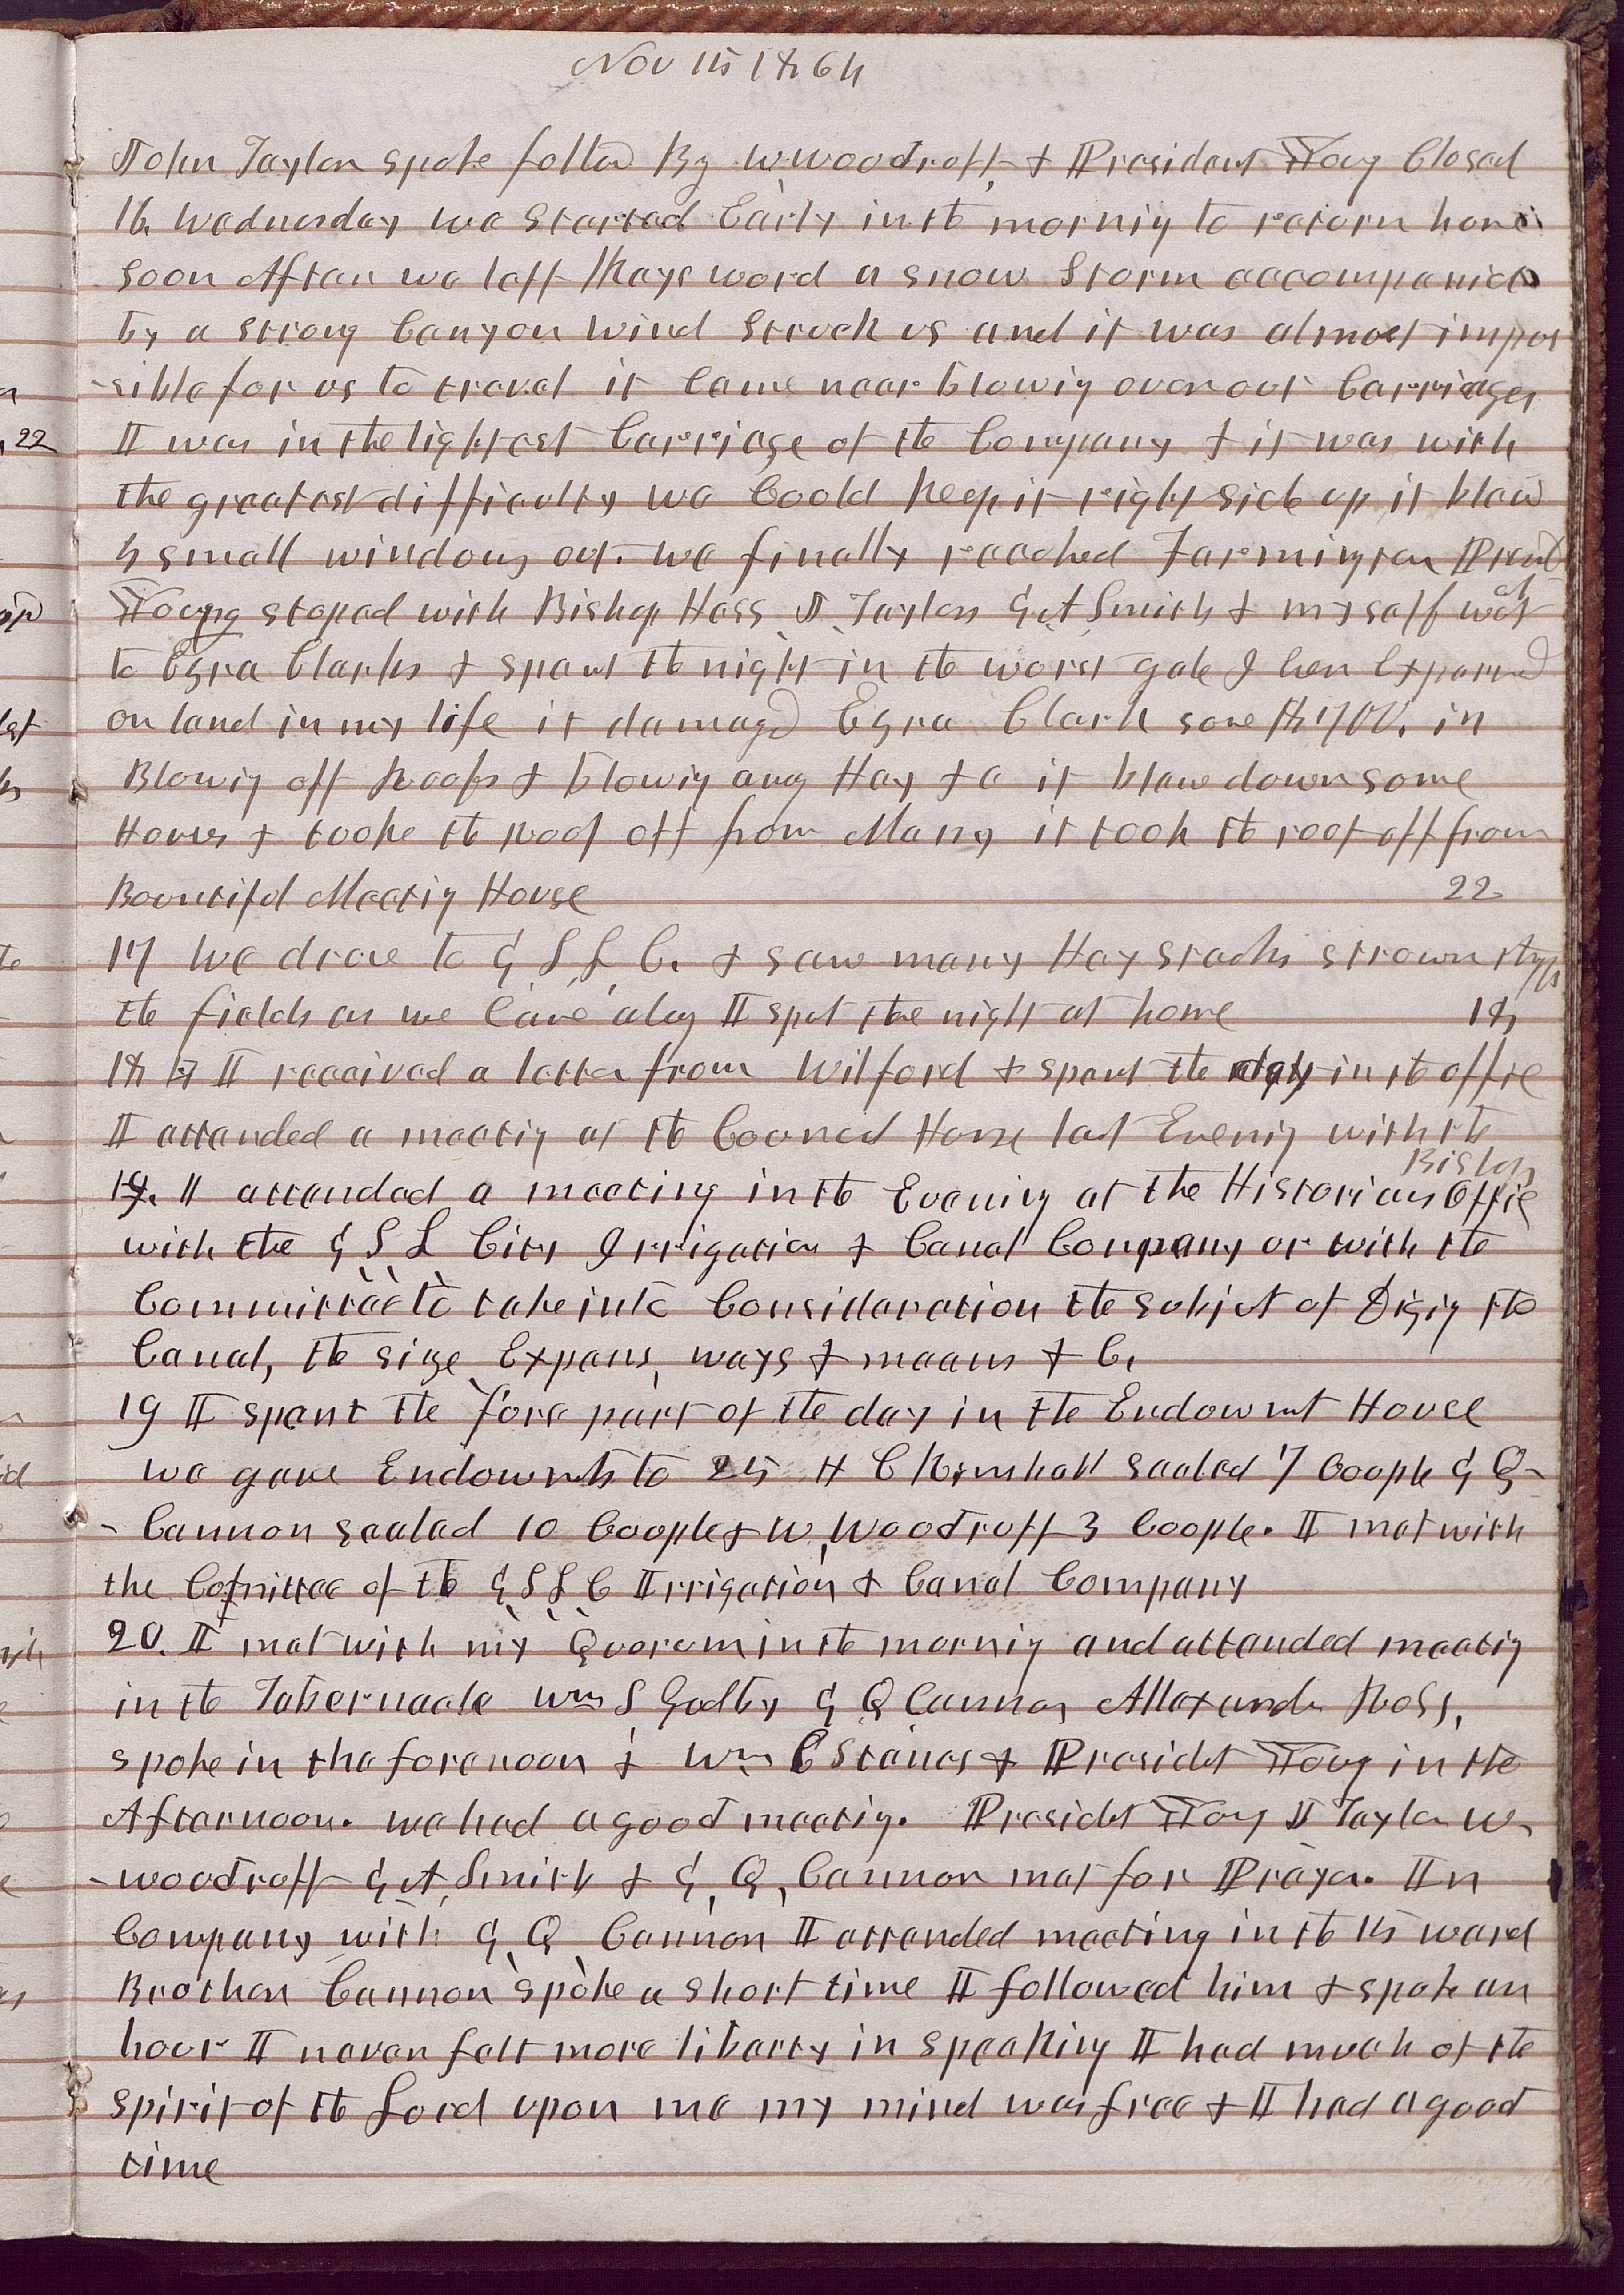 Nov 15 1864
John Taylor spoke followd By W. Woodruff, & President Young Closed
16, Wednesday we Started Early in the mornig to return home
soon After we left Kays word a snow Storm accompanied
by a strong Canyon wind struck us and it was almost impos
-sible for us to travel it came near blowig over our Carriages
I was in the lightest Carriage of the Company & it was with
the greatest difficulty we Could keep it right side up it blew
4 small windows out. we finally reached Farmington Presidt
Young stoped with Bishop Hess J. Taylor G. A Smith & myself wet
to Ezra Clarks & spent the night in the worst gale I ever Experiend
on land in my life it damagd Ezra Clark some $700. in
Blowig off Roofs & blowig away Hay &c it blew down some
Houses & tooke the roof off from Many it took the roof off from
Bountiful Meetig House
22
17 We drove to G S L C. & saw many Hay stacks strown through
the fields as we came alog I spet the night at home
18
18 I received a letter from Wilford & spent the day in the office
I attended a meetig at the Council House last Evenig with the
Bishop
19. I attended a meeting in the Evening at the Historians Office
with the G S L City Irrigation & Canal Company or with the
Committee to take into Consideration the subject of Digig the
Canal, the size, Expens, ways & means & C.
19 I spent the fore part of the day in the Endowmt House
we gave Endowmts to 25 H C Kimball sealed 7 Couple G Q-
- Cannon sealed 10 Couple & W. Woodruff 3 Couple. I met with
the Comittee of the G S L C Irrigation & Canal Company
20. I met with my Quorum in the mornig and attended meetig
in the Tabernacle Wm S Godby G Q Cannon Allexander Ross,
spoke in the forenoon & Wm C Staines & Presidet Young in the
Afternoon. we had a good meetig. Presidet Yong J Taylor W-
- Woodruff G. A, Smith & G, Q, Cannon met for Prayer. In
Company with G Q Cannon I attended meeting in the 15 ward
Brother Cannon spoke a short time I followed him & spoke an
hour I never felt more liberty in speaking I had much of the
spirit of the Lord upon me my mind was free & I had a good
time